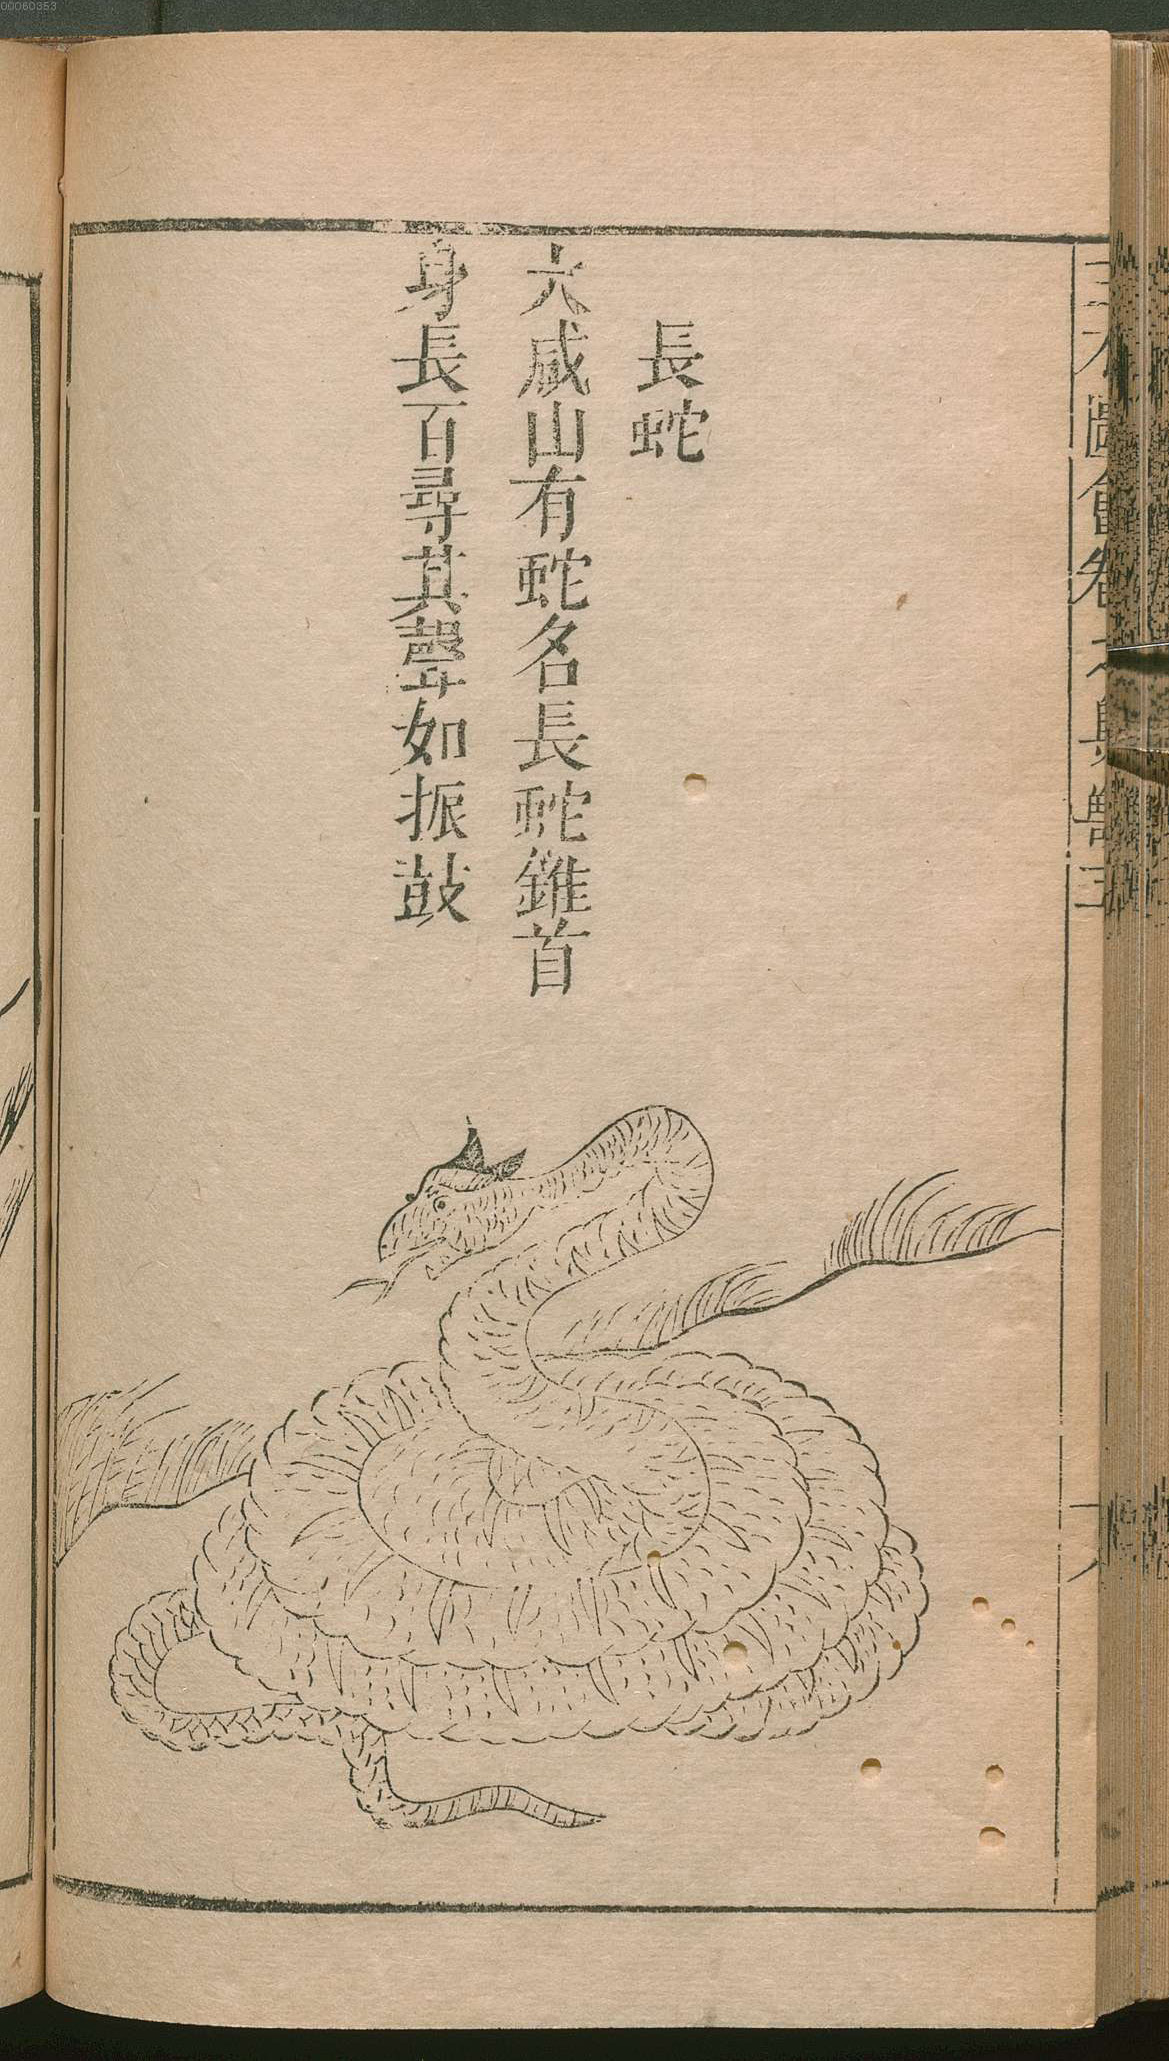 長蛇
大咸山有蛇名長蛇錐首
身長百尋其聲如振鼓
00060353